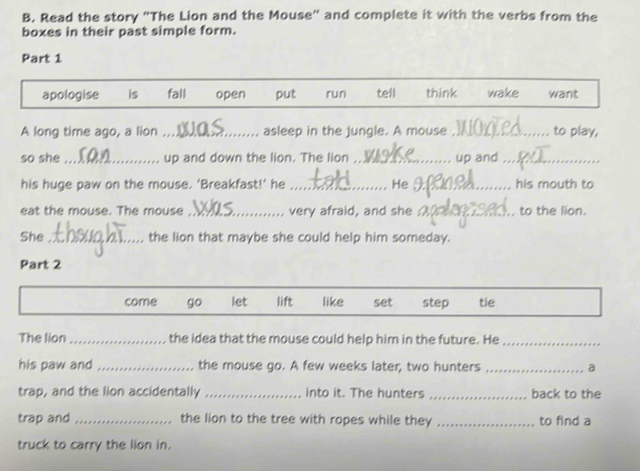 B. Read the story "The Lion and the Mouse" and complete it with the verbs from the
boxes in their past simple form.
Part 1
apologise is fall open put run tell think wake want
A long time ago, a lion ...was......... asleep in the jungle. A mouse .wanted...... to play,
so she ...ran............ up and down the lion. The lion ..woke......... up and ...put............
his huge paw on the mouse. 'Breakfast!' he ....told........... He opened........ his mouth to
eat the mouse. The mouse ..was............ very afraid, and she apologised.. to the lion.
She .thought..... the lion that maybe she could help him someday.
Part 2
come go let lift like set step tie
The lion ...................... the idea that the mouse could help him in the future. He ......................
his paw and ...................... the mouse go. A few weeks later, two hunters ...................... a
trap, and the lion accidentally ...................... into it. The hunters ...................... back to the
trap and ...................... the lion to the tree with ropes while they ...................... to find a
truck to carry the lion in.